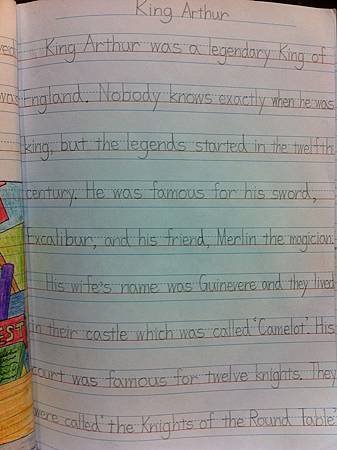 King Arthur
King Arthur was a legendary King of
England. Nobody knows exactly when he was
king, but the legends started in the twelfth
century. He was famous for his sword,
Excalibur, and his friend, Merlin the magician.
His wife's name was Guinevere and they lived
in their castle which was called 'Camelot'. His
court was famous for twelve knights. They
were called 'the Knights of the Round Table'